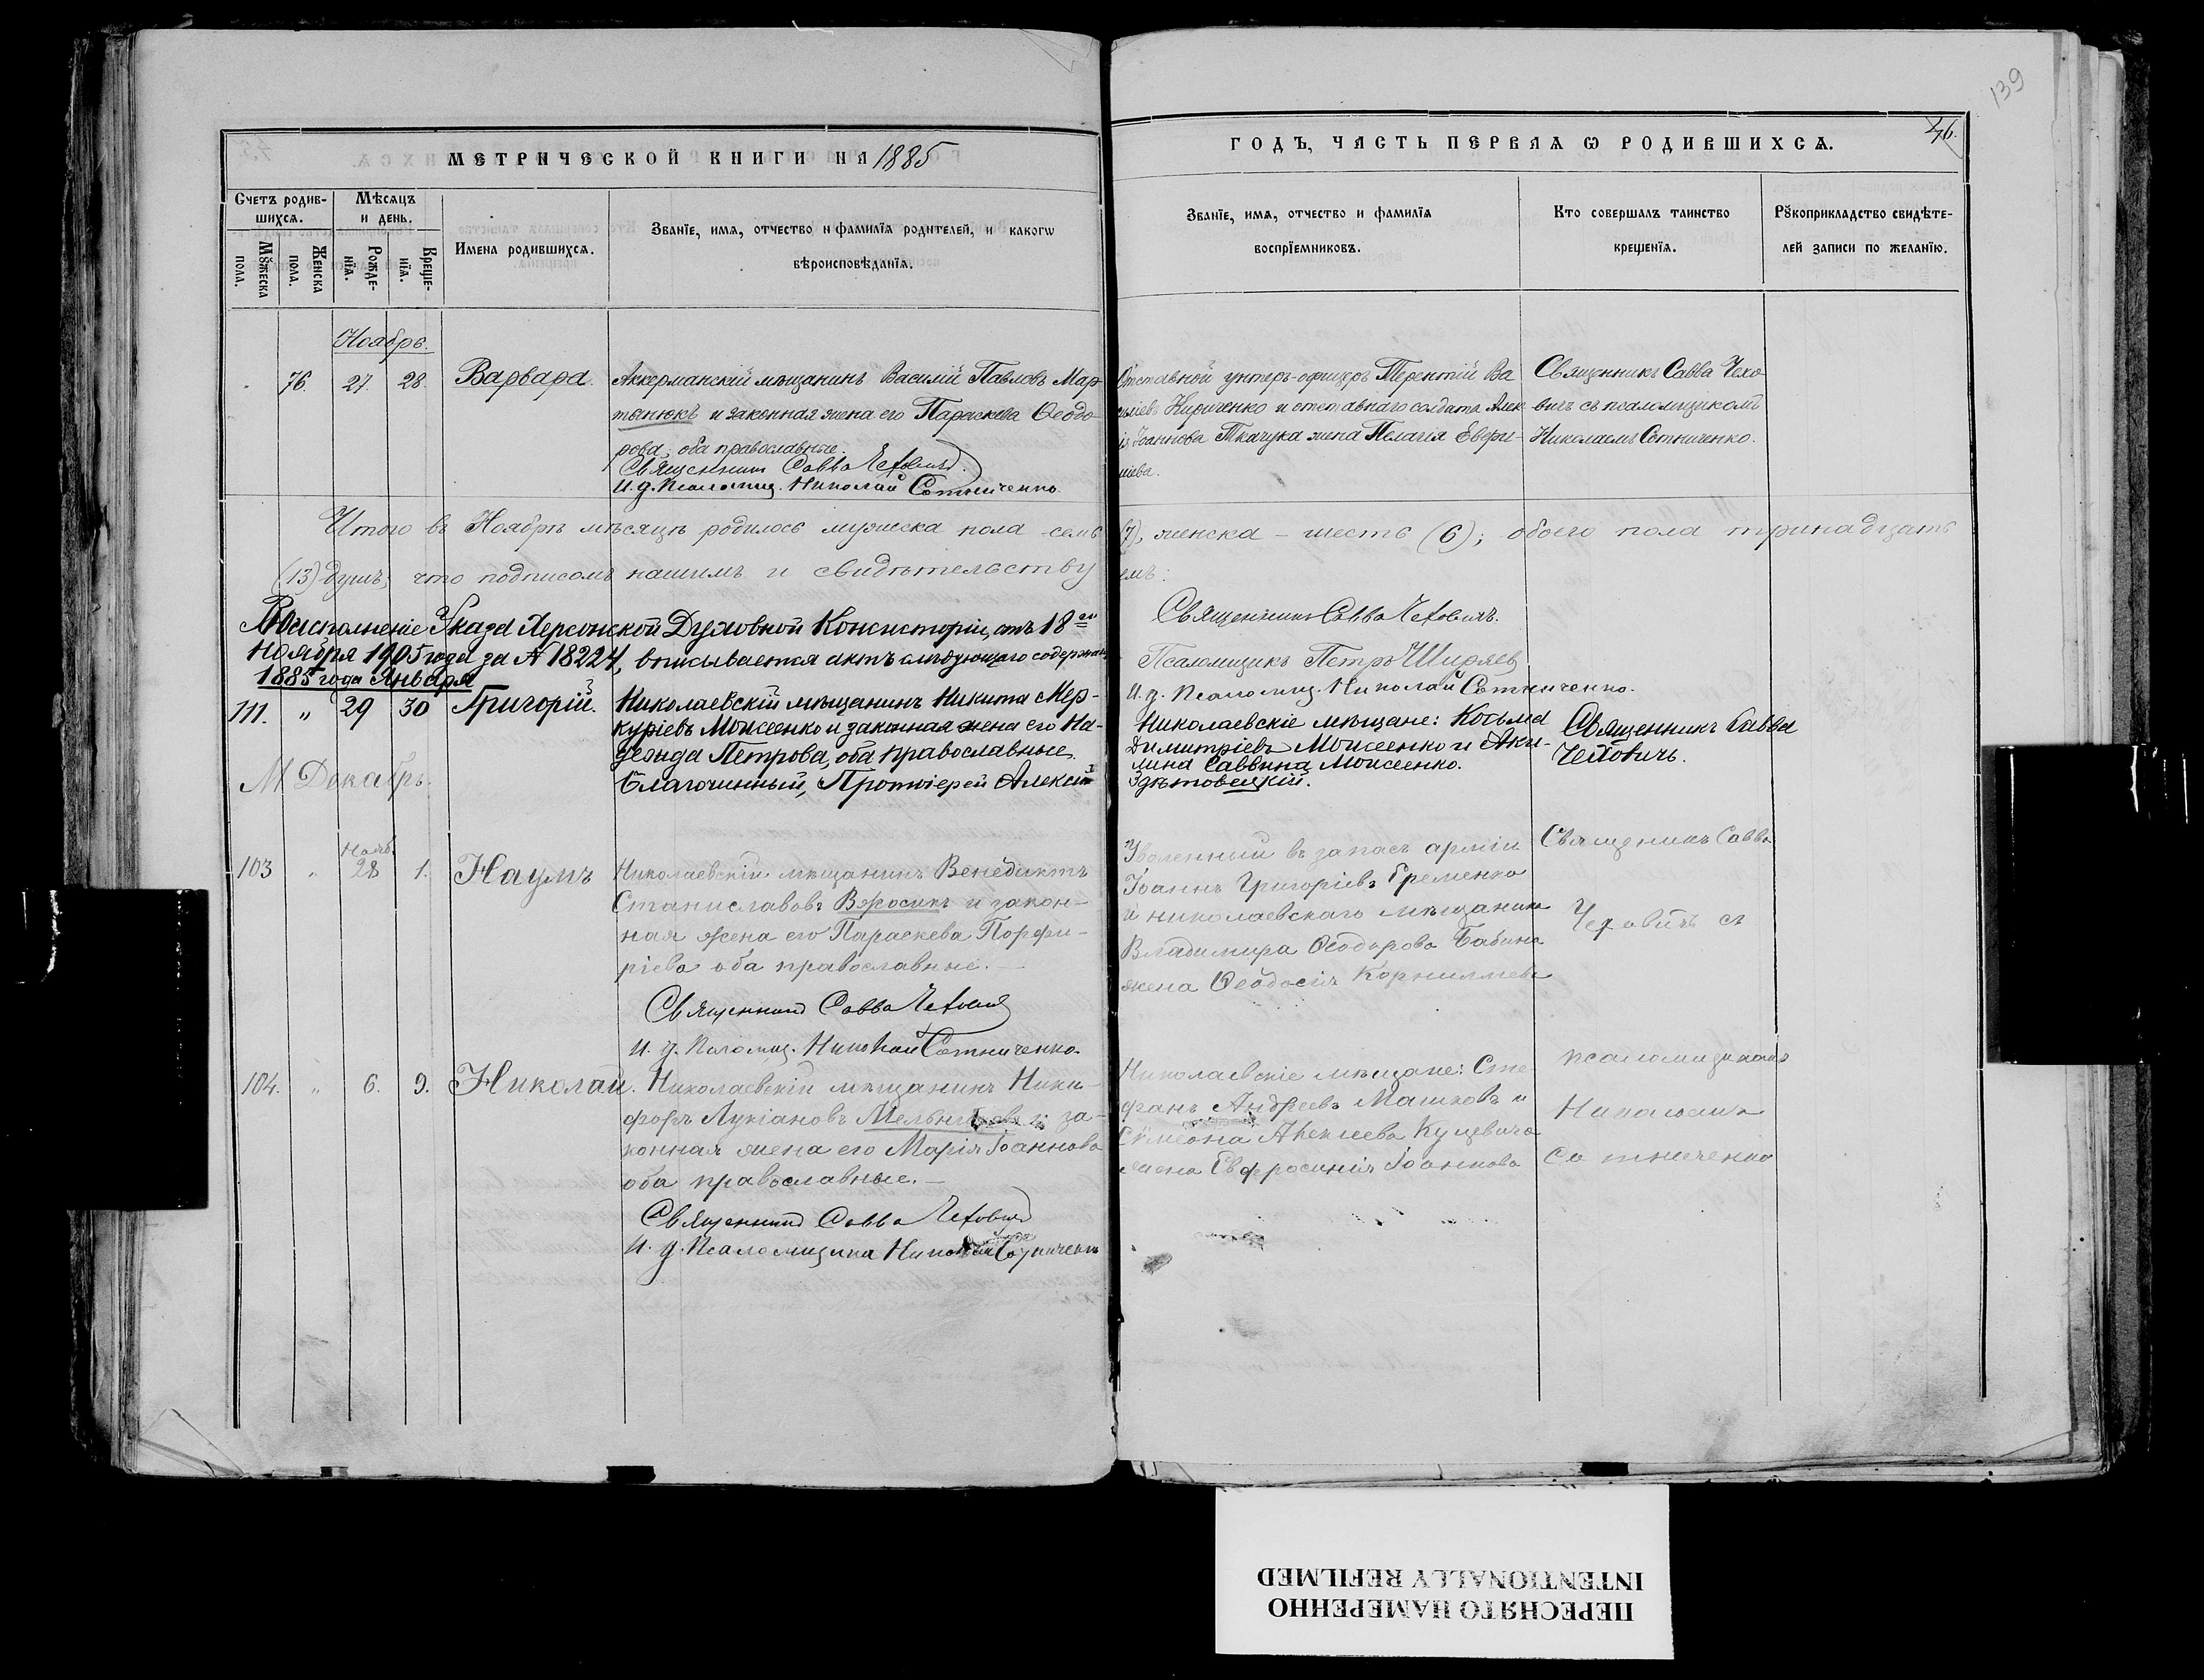 139
МЕТРИЧЕСКОЙ КНИГИ НА 1885
ГОДЪ, ЧАСТЬ ПЕРВАЯ Ѡ РОДИВШИХСѦ.
46.
Счетъ родив-
шихсѧ.
Мѣсѧцъ
и день.
Мꙋжеска
пола.
Женска
пола.
Рожде-
нїѧ.
Креще-
нїѧ.
Имена родившихсѧ.
Званїе, имѧ, отчество и фамилїѧ родителей, и какогѡ
вѣроисповѣданїѧ.
Званїе, имѧ, отчество и фамилїѧ
воспрїемниковъ.
Кто совершалъ таинство
крещенїѧ.
Рꙋкоприкладство свидѣте-
лей записи по желанїю.
Ноябрь.
76. 27. 28. Варвара.
Аккерманскій мѣщанинъ Василій Павловъ Мар-
тынюкъ и законная жена его Параскева Ѳеодо-
рова, оба православные.
Священникъ Савва Чеховичъ
И. д. Псаломщ. Николай Сотниченко
Отставной унтеръ-офицеръ Терентій Ва
сильевъ Кириченко и отставнаго солдата Алек
ія Іоаннова Ткачука жена Пелагія Евфи-
міева.
Священникъ Савва Чехо
вичъ съ псаломщикомъ
Николаемъ Сотниченко.
Итого въ Ноябрѣ мѣсяцѣ родилось мужеска пола семь
(7), женска – шесть (6); обоего пола тринадцать
(13) душъ, что подписомъ нашимъ и свидѣтельству
емъ:
Священникъ Савва Чеховичъ.
Псаломщикъ Петръ Ширяев
И. д. Псаломщ. Николай Сотниченко.
Во исполненіе Указа Херсонской Духовной Консисторіи, отъ 18го
ноября 1905 года за № 18224, вписывается актъ слѣдующаго содержанія
1885 года Января
111. „ 29 30 Григорій.
Николаевскій мѣщанинъ Никита Мер-
куріевъ Моисеенко и законная жена его На-
дежда Петрова, оба православные
Благочинный, Протоіерей Алексій
Николаевскіе мѣщане: Косьма
Димитріевъ Моисеенко и Аку-
лина Саввина Моисеенко.
Священникъ Савва
Чеховичъ.
М. Декабрь.
103 „ Нояб. 28 1. Наумъ
Николаевскій мѣщанинъ Венедиктъ
Станиславовъ и закон-
ная жена его Параскева Порфи-
ріева оба православные.
Священникъ Савва Чеховичъ
И. д. Псаломщ. Николай Сотниченко.
Уволенный въ запасъ арміи
Іоаннъ Григоріевъ Еременко
и николаевскаго мѣщанина
Владимира Ѳеодорова Бабина
жена Ѳеодосія Корнилиева
Священникъ Савва
Чеховичъ съ
104. „ 6. 9. Николай.
Николаевскій мѣщанинъ Ники-
форъ Лукіановъ и за-
конная жена его Марія Іоаннова
оба православные.
Священникъ Савва Чеховичъ
И. д. Псаломщика Николай Сотниченко
Николаевскіе мѣщане: Сте
фанъ Андреевъ Машковъ и
Сѵмеона Алексеева Куцевича
жена Евфросинія Іоаннова
псаломщикомъ
Николаемъ
Сотниченко
ПЕРЕСНЯТО НАМЕРЕННО
INTENTIONALLY REFILMED